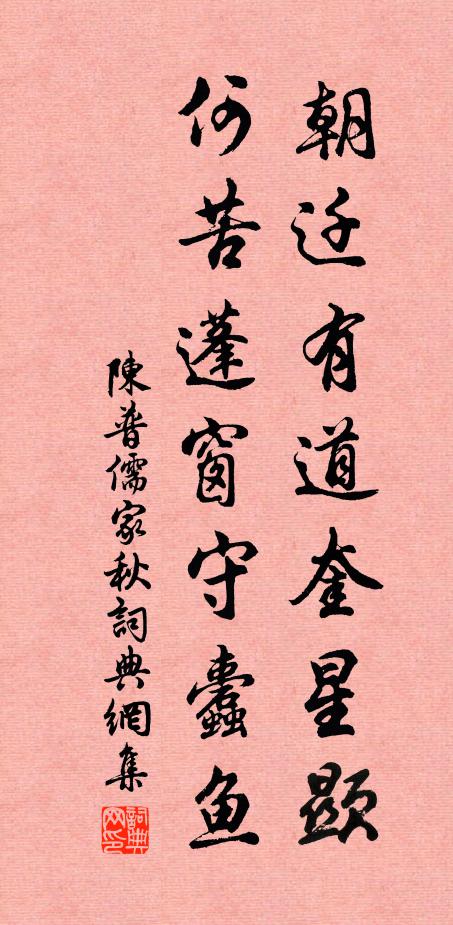 朝迁有道奎星顕
何苦蓬窗守蠹鱼
陳普儒家秋詞典網集
詞典网印